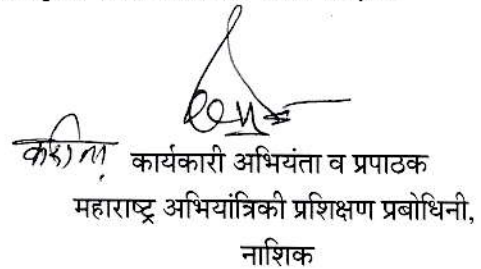 कार्यकारी अभियंता व प्रपाठक
महाराष्ट्र अभियांत्रिकी प्रशिक्षण प्रबोधिनी,
नाशिक